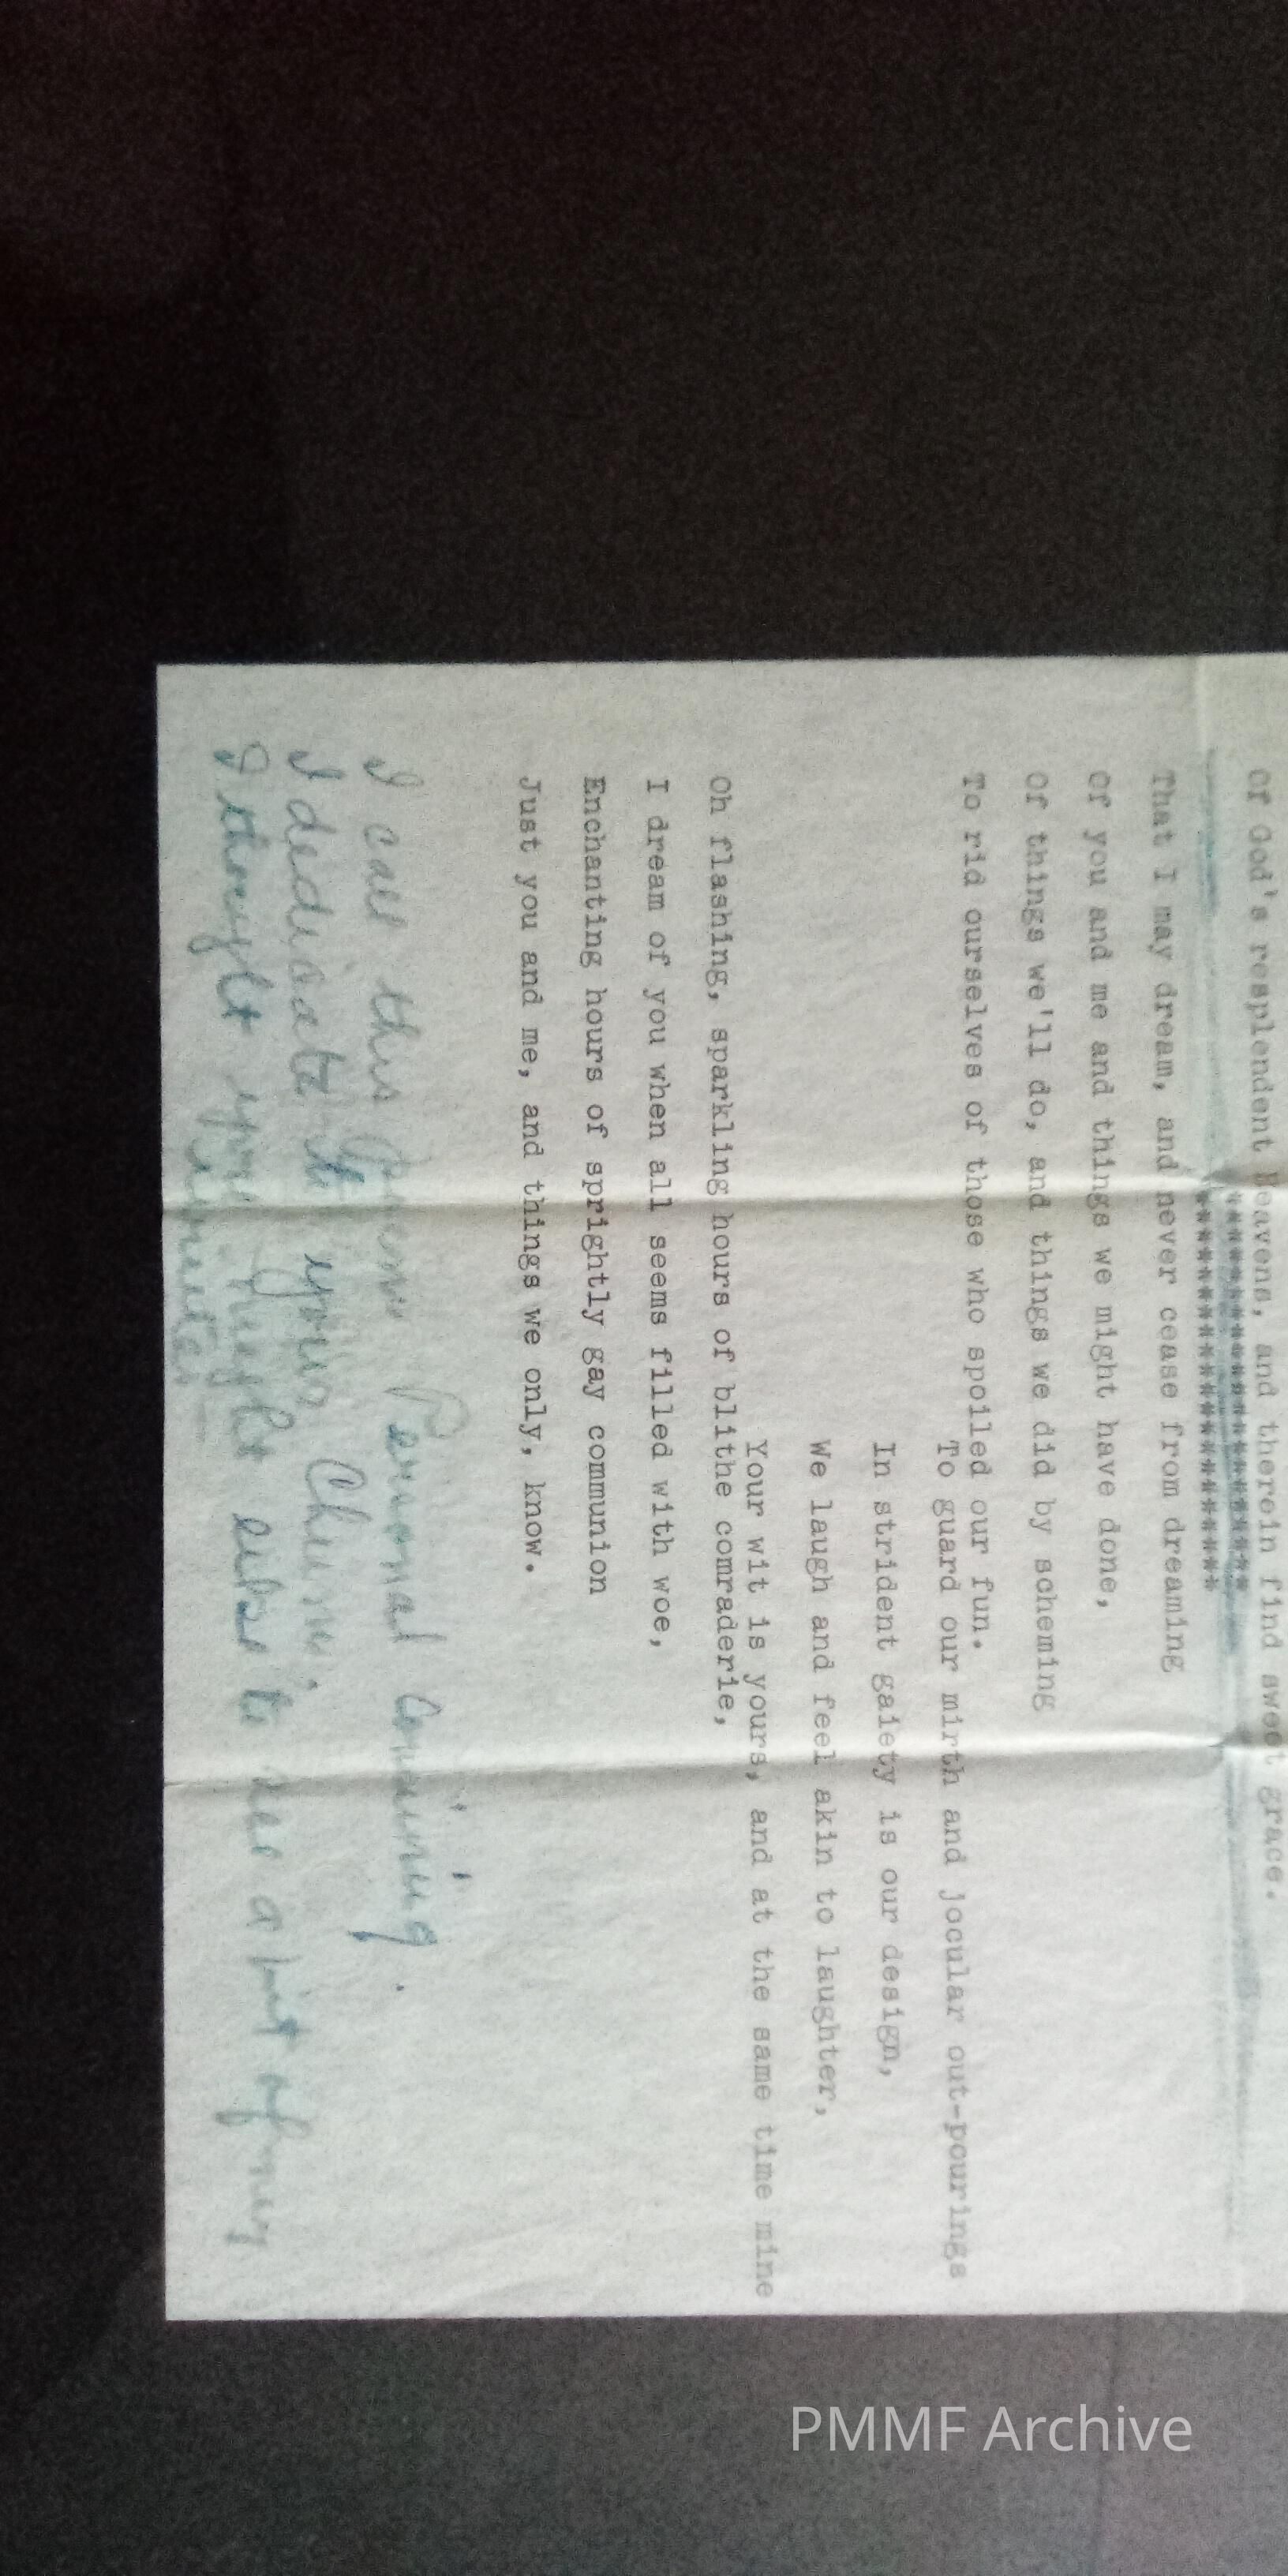 Of God's resplendent Heavens, and therein find sweet grace.
********************
********************
That I may dream, and never cease from dreaming
Of you and me and things we might have done,
Of things we'll do, and things we did by scheming
To rid ourselves of those who spoiled our fun.
To guard our mirth and jocular out-pourings
In strident gaiety is our design,
We laugh and feel akin to laughter,
Your wit is yours, and at the same time mine
Oh flashing, sparkling hours of blithe comraderie,
I dream of you when all seems filled with woe,
Enchanting hours of sprightly gay communion
Just you and me, and things we only, know.
I call this Personal Communing.
I dedicate it to you, Chum.
I thought you might like to see a bit of my
PMMF Archive